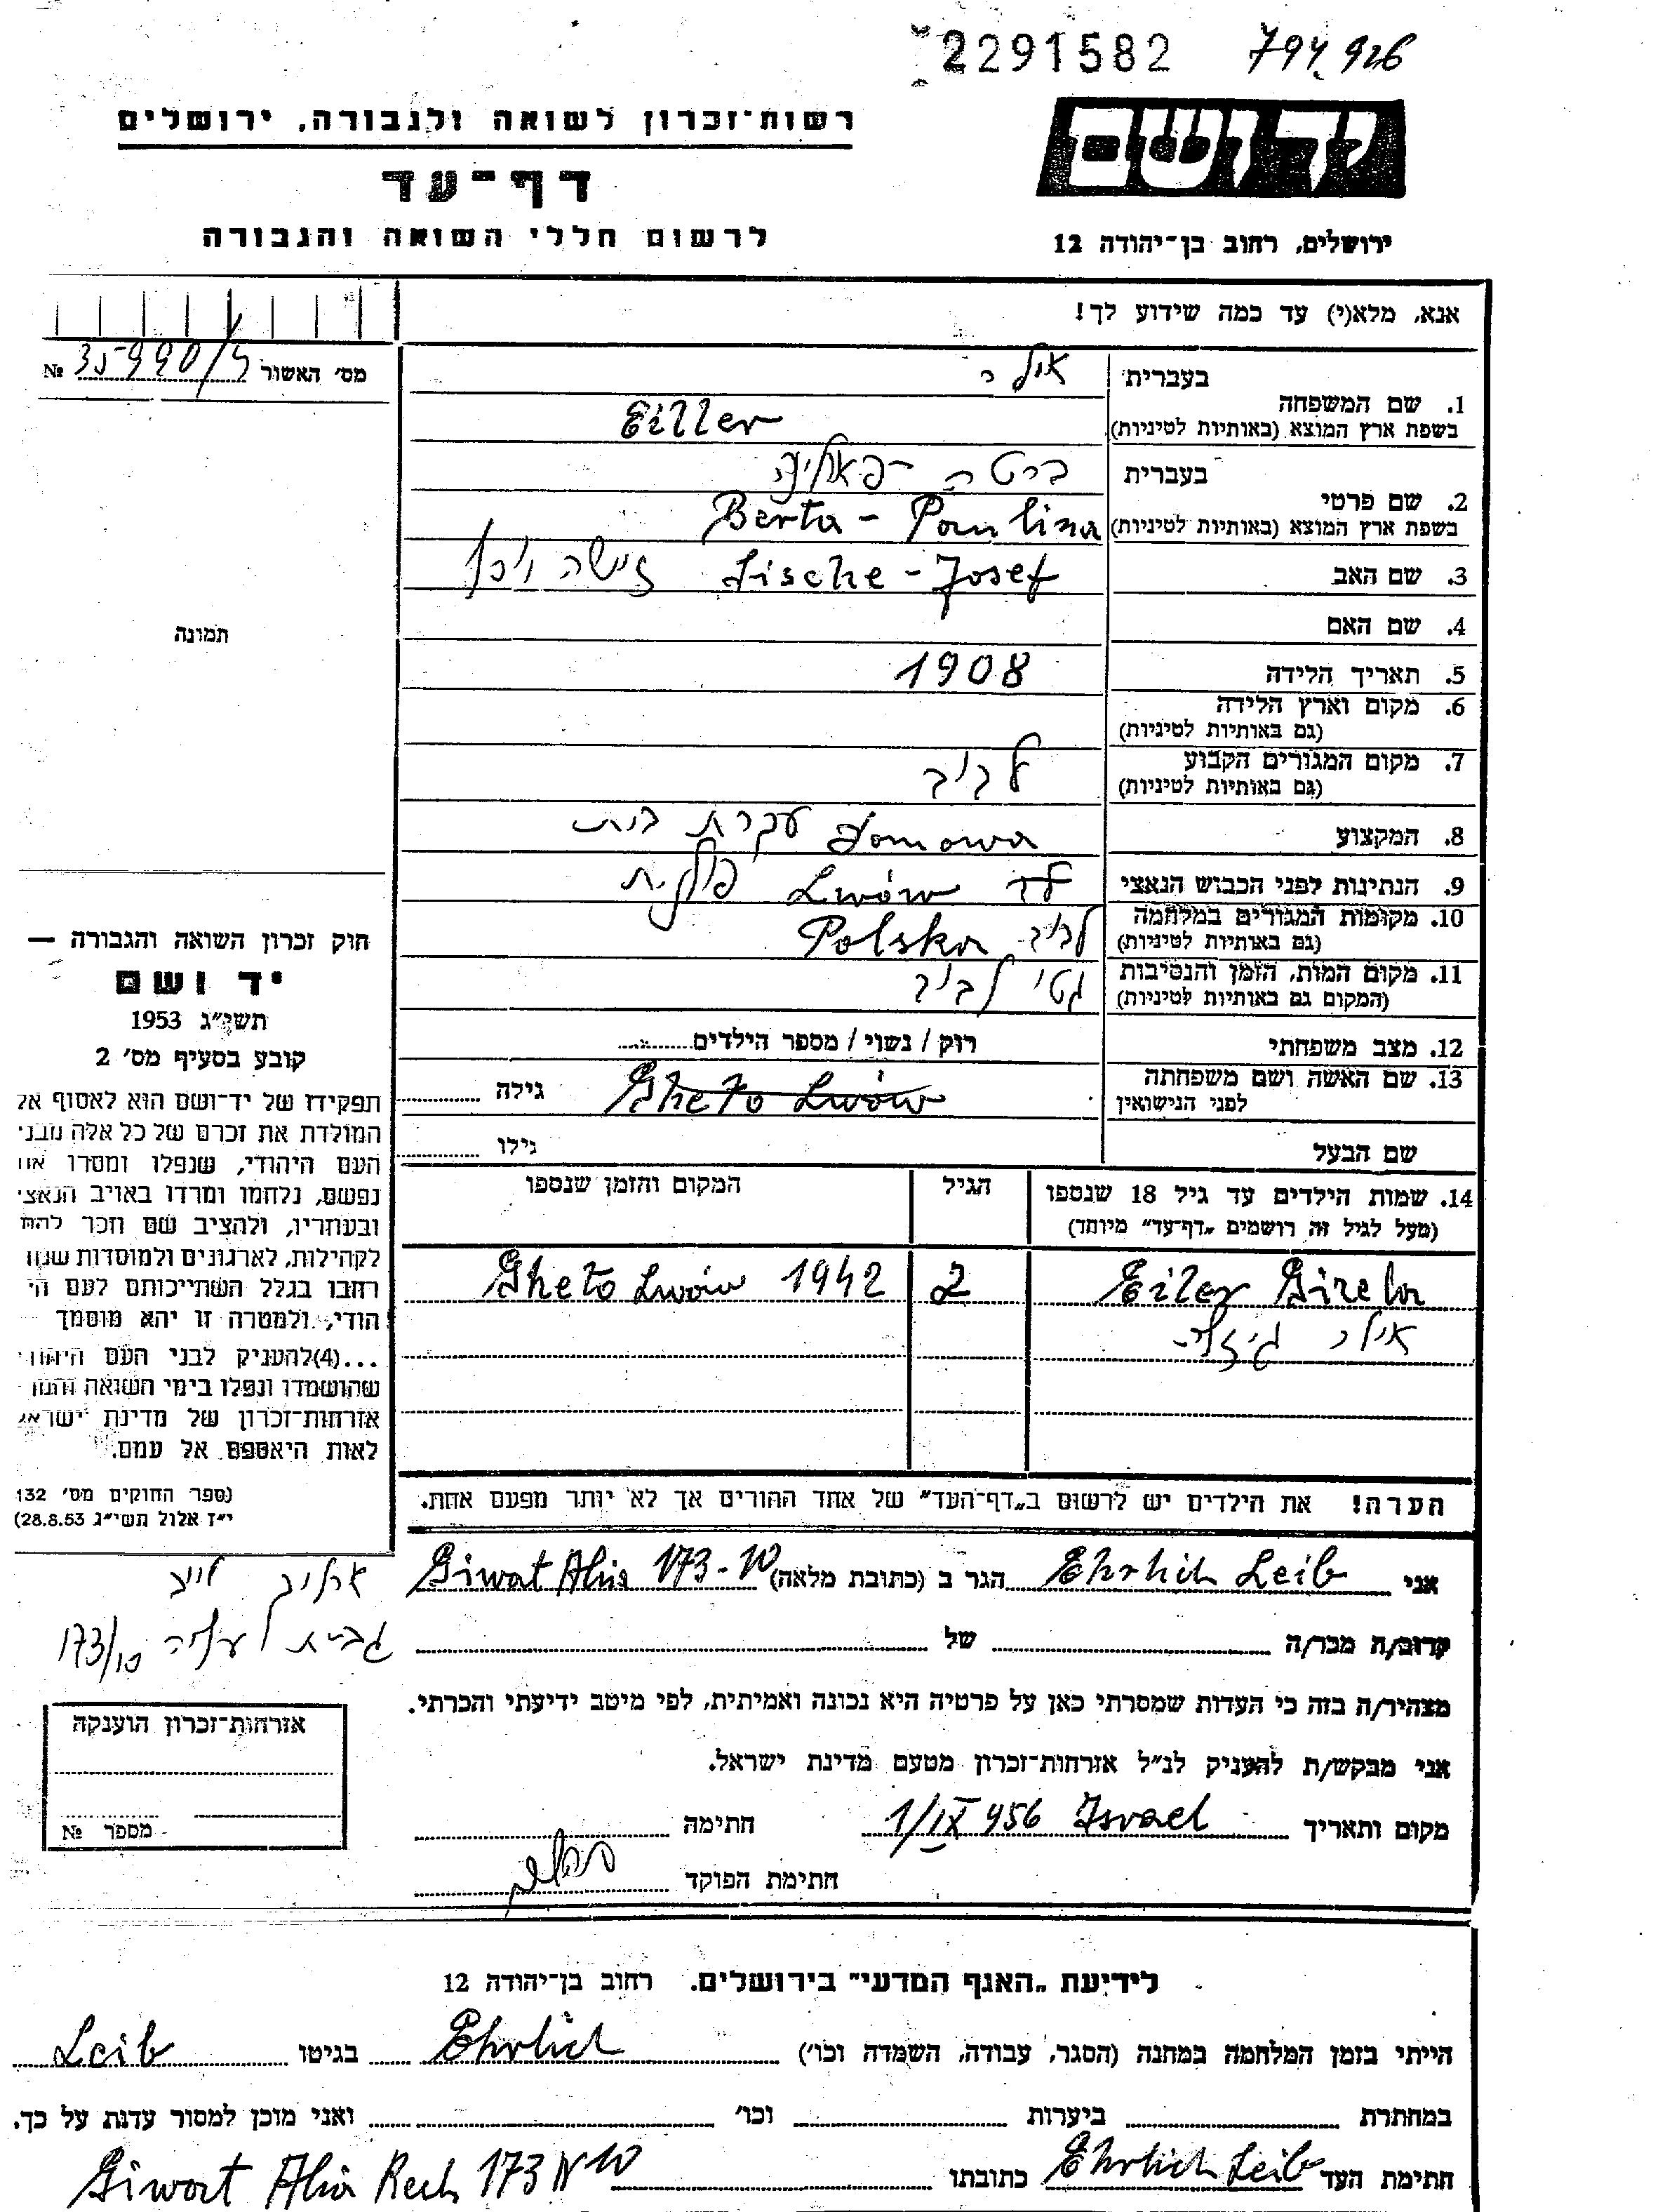 2291582 794,926
יד ושם
רשות־זכרון לשואה ולגבורה, ירושלים
דף־עד
לרשום חללי השואה והגבורה
ירושלים, רחוב בן־יהודה 12
אנא, מלא(י) עד כמה שידוע לך!
מס' האשור 35990/5 №
1. שם המשפחה
בעברית אילר
בשפת ארץ המוצא (באותיות לטיניות) Eiller
2. שם פרטי
בעברית ברטה - פאולינה
בשפת ארץ המוצא (באותיות לטיניות) Berta - Paulina
3. שם האב Sische - Josef זישה
4. שם האם
5. תאריך הלידה 1908
6. מקום וארץ הלידה
(גם באותיות לטיניות)
7. מקום המגורים הקבוע לביב
(גם באותיות לטיניות)
8. המקצוע domowa עקרת בית
9. הנתינות לפני הכבוש הנאצי Lwów פולנית
10. מקומות המגורים במלחמה לביב Polska
(גם באותיות לטיניות)
11. מקום המות, הזמן והנסיבות גטו לביב
(המקום גם באותיות לטיניות)
12. מצב משפחתי רוק / נשוי / מספר הילדים
13. שם האשה ושם משפחתה Gheto Lwów גילה
לפני הנישואין
שם הבעל גילו
14. שמות הילדים עד גיל 18 שנספו הגיל המקום והזמן שנספו
(מעל לגיל זה רושמים „דף־עד" מיוחד)
Eiler Gizela 2 Gheto Lwów 1942
אילר גיזלה
הערה! את הילדים יש לרשום ב„דף־העד" של אחד ההורים אך לא יותר מפעם אחת.
תמונה
חוק זכרון השואה והגבורה —
יד ושם
תשי"ג 1953
קובע בסעיף מס' 2
תפקידו של יד־ושם הוא לאסוף אל
המולדת את זכרם של כל אלה מבני
העם היהודי, שנפלו ומסרו את
נפשם, נלחמו ומרדו באויב הנאצי
ובעוזריו, ולהציב שם וזכר להם
לקהילות, לארגונים ולמוסדות שנח
רחבו בגלל השתייכותם לעם הי
הודי, ולמטרה זו יהא מוסמך
...(4)להעניק לבני העם היהודי
שהושמדו ונפלו בימי השואה והמר
אזרחות־זכרון של מדינת ישראל
לאות היאספם אל עמם.
(ספר החוקים מס' 132
י"ז אלול תשי"ג 28.8.53)
אני Ehrlich Leib הגר ב (כתובת מלאה) Giwat Alia 173-10
ארליך לייב
גבעת עליה 173/10
קרוב/ה מכר/ה של
מצהיר/ה בזה כי העדות שמסרתי כאן על פרטיה היא נכונה ואמיתית, לפי מיטב ידיעתי והכרתי.
אני מבקש/ת להעניק לנ"ל אזרחות־זכרון מטעם מדינת ישראל.
מקום ותאריך Israel 1/IX 956 חתימה
חתימת הפוקד
אזרחות־זכרון הוענקה
מספר №
לידיעת „האגף המדעי" בירושלים. רחוב בן־יהודה 12
הייתי בזמן המלחמה במחנה (הסגר, עבודה, השמדה וכו') Ehrlich בגיטו Leib
במחתרת ביערות וכו' ואני מוכן למסור עדות על כך.
חתימת העד Ehrlich Leib כתובתו Giwat Alia Rech 173 N 10